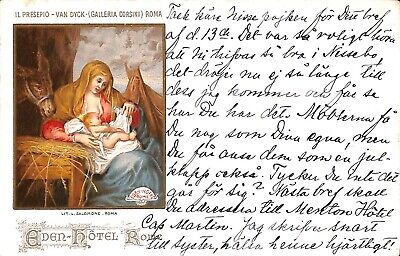 IL PRESEPIO - VAN DYCK - (GALLERIA CORSINI) ROMA
LIT. L. SALOMONE. ROMA
EDEN-HÔTEL ROMA
Tack käre Nisse pojken för Ditt bref
af d. 13de. Det var så roligt höra
att Ni trifvas så bra i Nissebo,
det dröjer nu ej så länge till
dess jag kommer och får se
hur Du har det. Möblerna få
Du nog som Dina egna, men
Du får anse dem som en jul-
klapp också. Tycker Du inte det
går för sig? Nästa bref skall
Du adressera till Menton Hôtel
Cap Martin. Jag skrifver snart
till syster, hälsa henne hjärtligt!